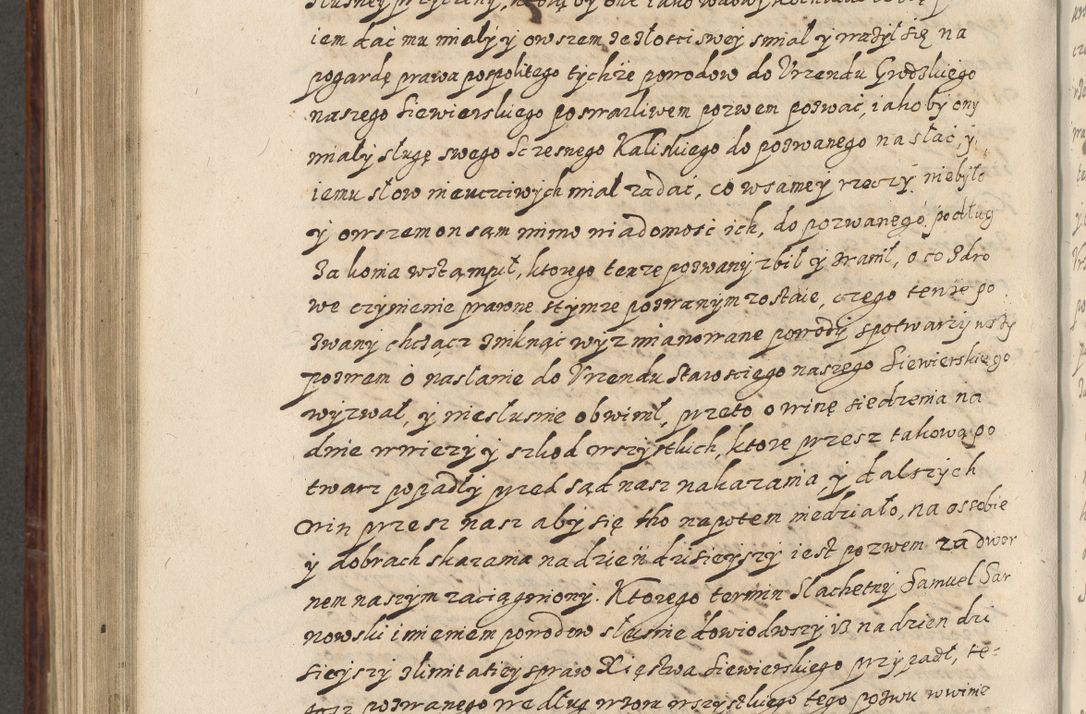 iem dać mu miały y owszem z złości swey smiał y ważył się na
pogardę prawa pospolitego tychże powodow do Vrzendu Grodskiego
naszego Siewierskiego poswarliwem pozwem pozwać, iakoby ony
miały sługę swego Sczesnego Kaliskiego do pozwanego nasłać, y
iemu słow nieuczciwych miał zadać, co w samey rzeczy niebyło
y owszem on sam mimo wiadomosc ich, do pozwanego podług
Za konia wstąmpył, ktorego tenże pozwany zbił y zranił, o co zdro
we czynienie prawne stymże pozwanym zostaie, czego tenże po
zwany chcącz zmknąć wyz mianowane powody spotwarzy
pozwem o nasłanie do Vrzendu Starosciego naszego Siewierskiego
wyzwał, y niesłusznie obwinił, przeto o winę siedzenia na
dnie w wieży y szkod wszystkich, ktore przesz takową po
twarz popadły przed sąd nasz nakazania, y dalszych
win przesz nasz aby się tho napotem niedziało, na ossobie
y dobrach skazania na dzień dzisieyszy iest pozwem za dwor
nem naszym zaciągniony. Ktorego termin Slachetny Samuel Sar
nowski imieniem powodow słusnie dowiodwszy iż na dzien dzi
sieyszy zlimitatiey spraw Xięstwa Siewierskiego przypadł, te-
gosz pozwanego według wzoru wszystkiego tego pozwu w winie